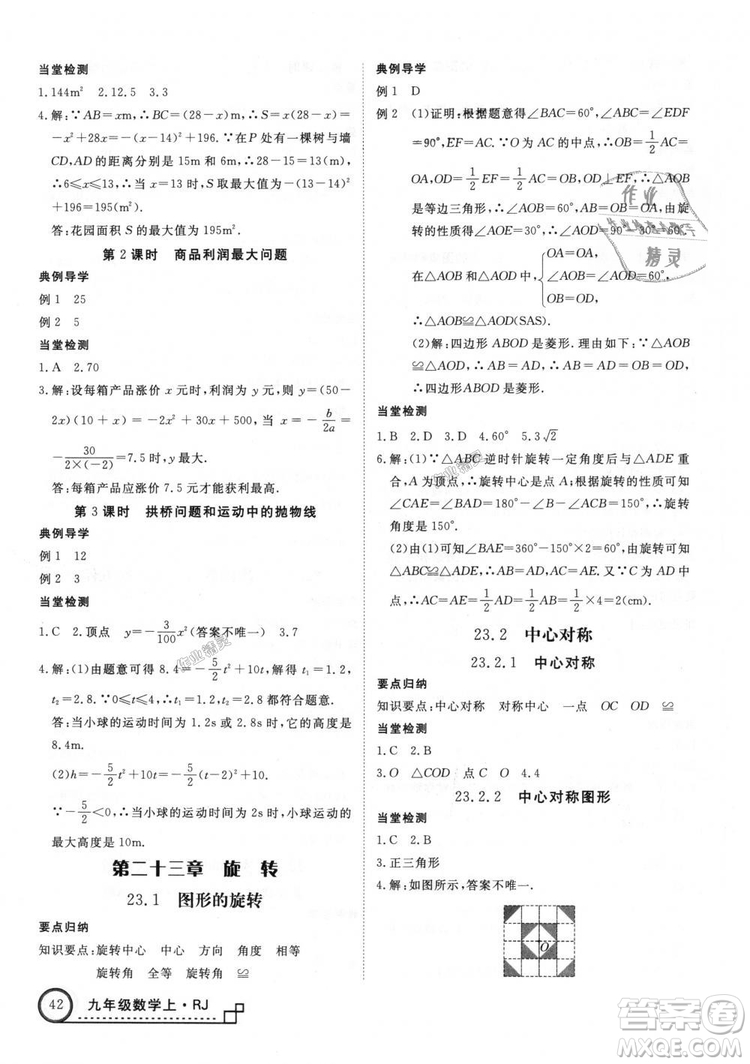 当堂检测
1.144m²　2.12.5　3.3
4.解:∵AB=xm,∴BC=(28-x)m.∴S=AB·BC=x(28-x)
=-x²+28x=-(x-14)²+196.∵在P处有一棵树与墙
CD,AD的距离分别是15m和6m,∴x≥6,28-x≥15,
∴6≤x≤13,∴当x=13时,S取最大值为-(13-14)²
+196=195(m²).
答:花园面积S的最大值为195m².
第2课时　商品利润最大问题
典例导学
例1　25
例2　5
当堂检测
1.A　2.70
3.解:设每箱产品涨价x元时,利润为y元,则y=(50-
2x)(10+x)=-2x²+30x+500,∴当x=-b/2a=
-30/(2×(-2))=7.5时,y最大.
答:每箱产品涨价7.5元才能获利最高.
第3课时　拱桥问题和运动中的抛物线
典例导学
例1　12
例2　3
当堂检测
1.C　2.顶点　y=-3/100x²(答案不唯一)　3.7
4.解:(1)由题意可得-5/2t²+10t=8.4,解得t₁=1.2,
t₂=2.8.∵0≤t≤4,∴t₁=1.2,t₂=2.8都符合题意.
答:当小球的运动时间为1.2s或2.8s时,小球高度是
8.4m.
(2)h=-5/2t²+10t=-5/2(t-2)²+10.
∵-5/2<0,∴当小球的运动时间为2s时,小球运动的
最大高度是10m.
第二十三章　旋　转
23.1　图形的旋转
要点归纳
知识要点:旋转中心　中心　方向　角度　相等
旋转角　全等　旋转角　≌
42　九年级数学上·RJ
典例导学
例1　D
例2　(1)证明:根据题意得∠BAC=60°,∠BAC=∠EDF
=90°,EF=BC.∵O为AC的中点,∴OB=1/2AC=
OA,OD=1/2EF=1/2AC=OA.∵∠BAC=60°,∴△AOB
是等边三角形,∴∠AOB=60°,OA=OB=OD.由旋
转的性质得∠AOE=30°,∴∠AOD=90°-30°=60°.
在△AOB和△AOD中,{OA=OA,
∠AOB=∠AOD=60°,
OB=OD,
∴△AOB≌△AOD(SAS).
(2)解:四边形ABOD是菱形.理由如下:∵△AOB≌
△AOD,∴AB=AD=OB=OA=OD,∴四边形
ABOD是菱形.
当堂检测
1.B　2.B　3.D　4.60°　5.3√2
6.解:(1)∵△ABC逆时针旋转一定角度后与△ADE重
合,A为顶点,∴旋转中心是点A;根据旋转的性质可知
∠CAE=∠BAD=180°-∠B-∠ACB=150°,∴旋转
角度是150°.
(2)由(1)可知∠BAE=360°-150°×2=60°.由旋转可
知AB=AD,AC=AE.∵C为AD的中点,
∴AC=AE=1/2AD=1/2AB=1/2×4=2(cm).
23.2　中心对称
23.2.1　中心对称
要点归纳
知识要点:中心对称　对称中心　一点　OC　OD　≌
当堂检测
1.C　2.B
3.O　△COD　点C　4.4
23.2.2　中心对称图形
当堂检测
1.C　2.B
3.正三角形
4.解:如图所示,答案不唯一.
O
作业
精灵
作业精灵
作业精灵
答案圈
MXQE.COM